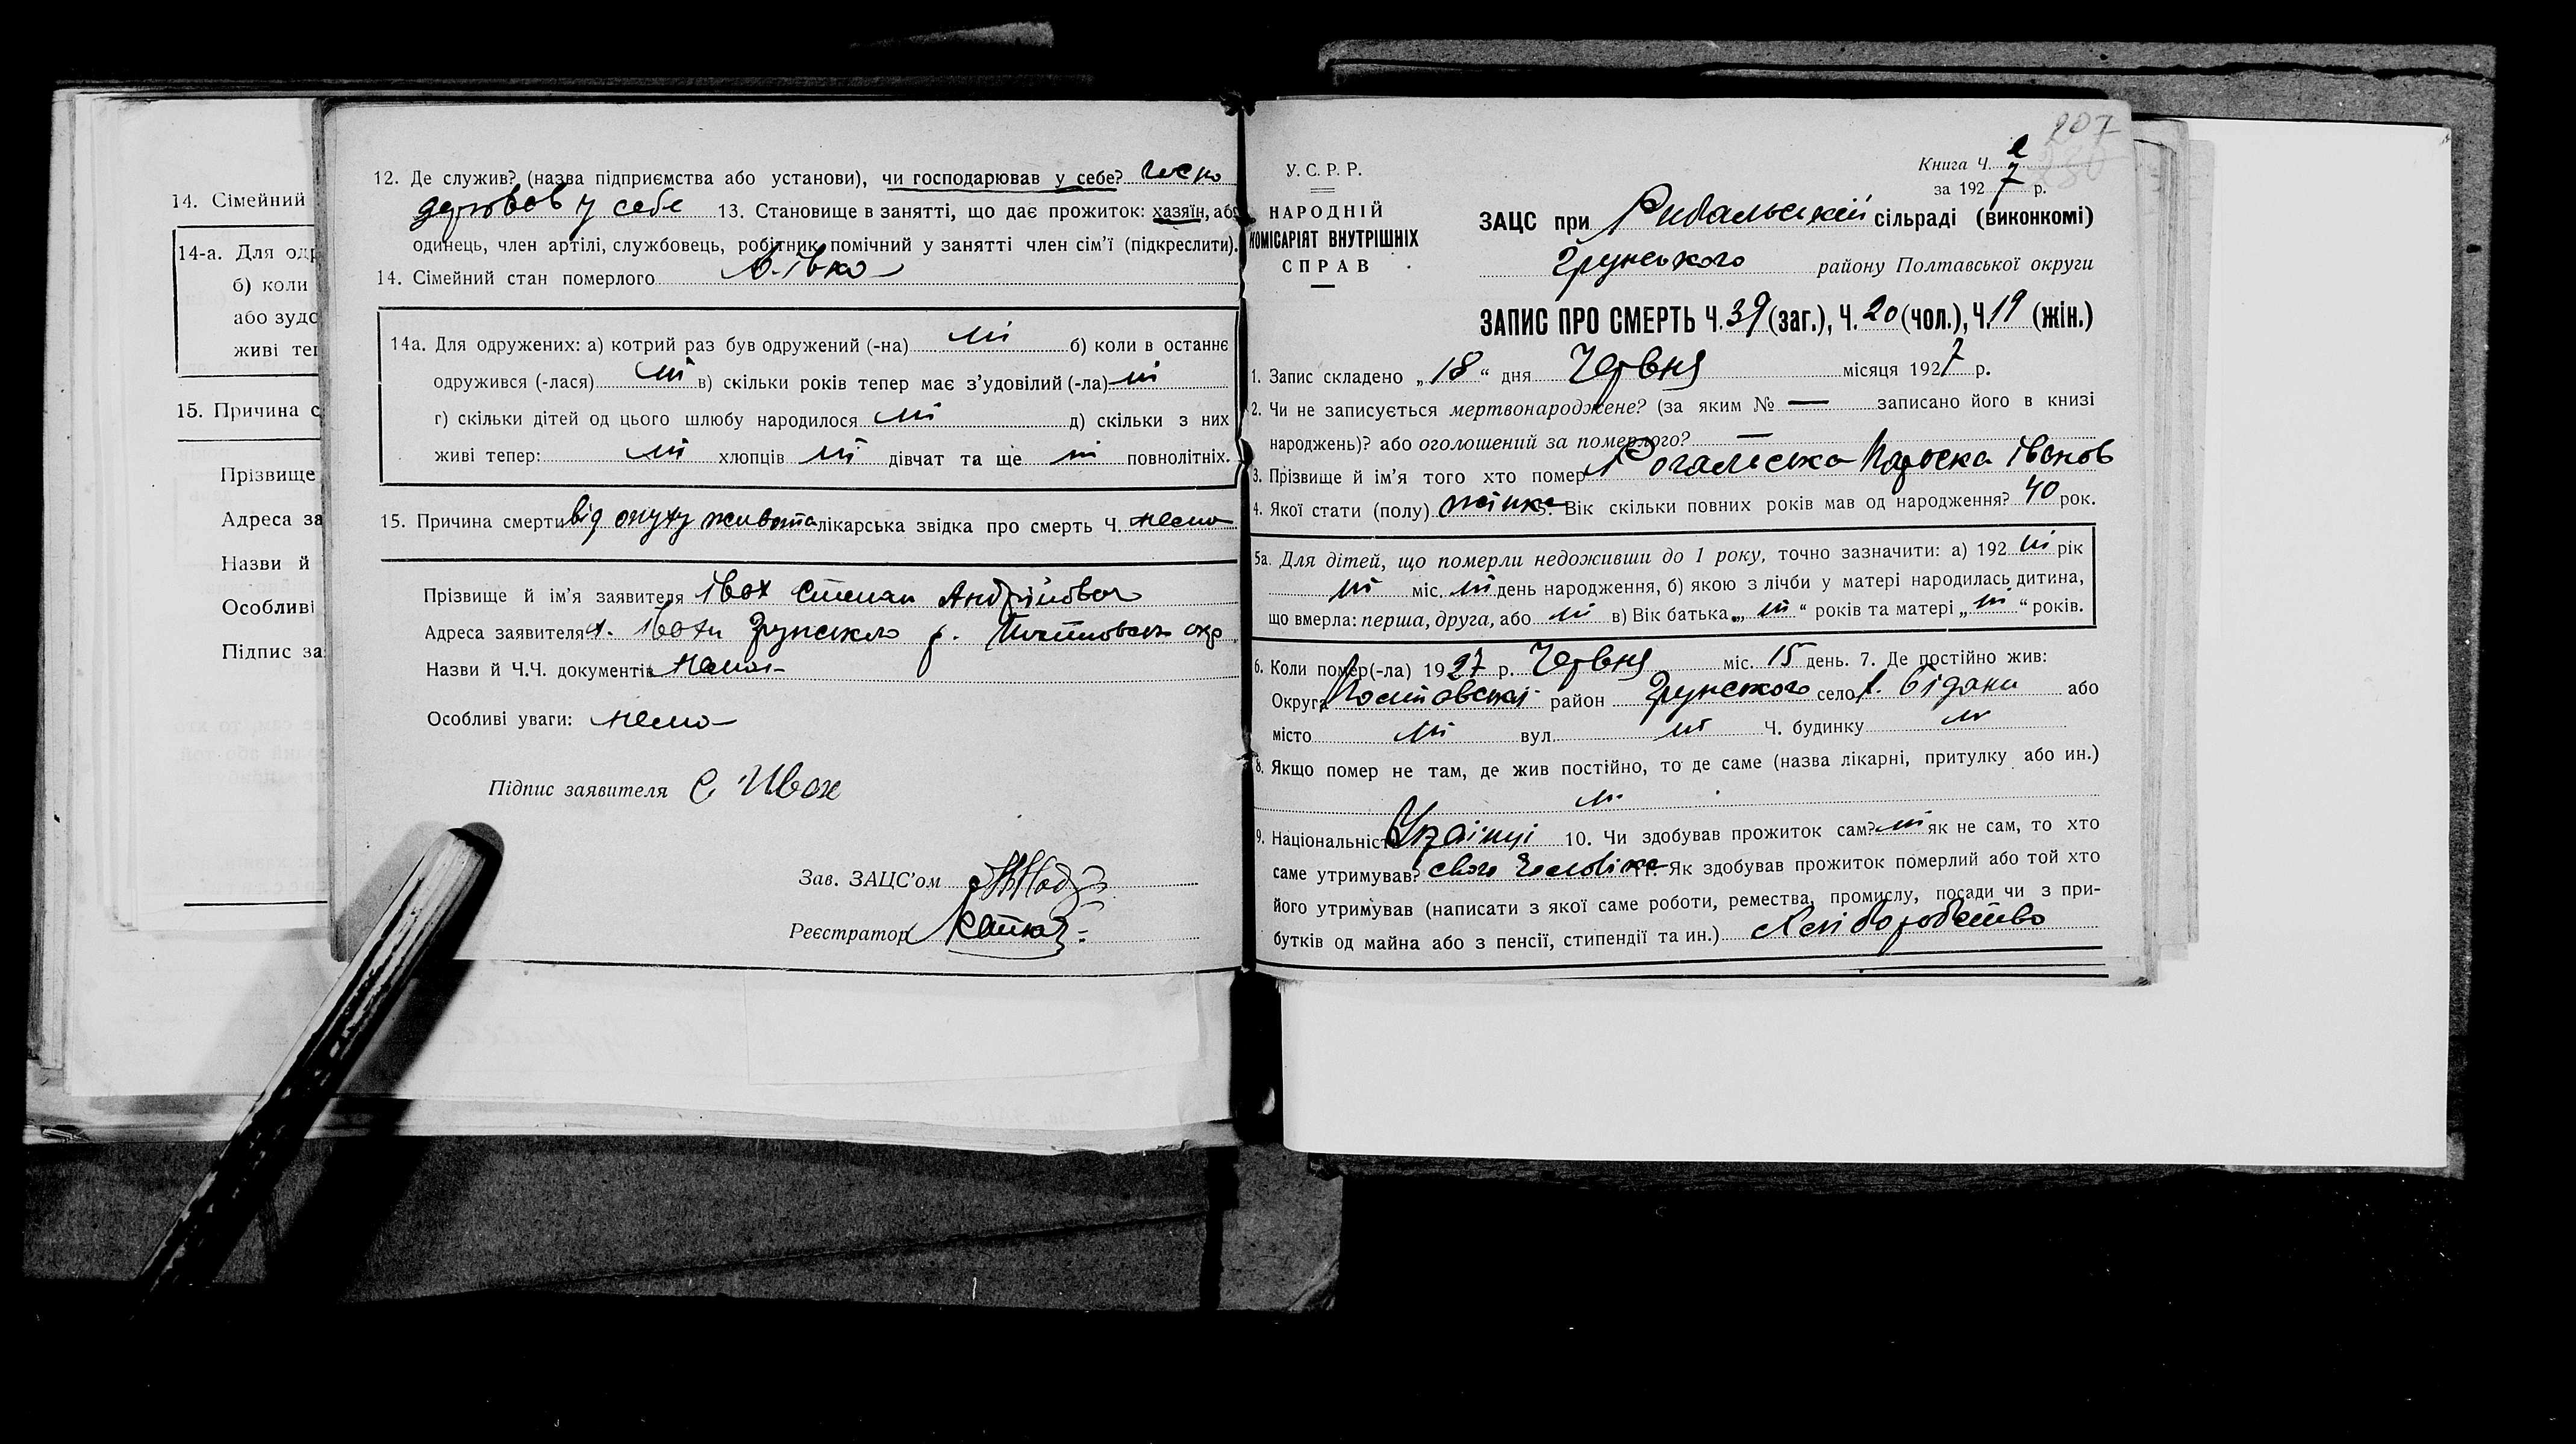 14. Сімейний
14-а. Для одр
б) коли
або зудо
живі теп
15. Причина с
Прізвище
Адреса за
Назви й
Особливі
Підпис за
12. Де служив? (назва підприємства або установи), чи господарював у себе? госпо
дарював у себе 13. Становище в занятті, що дає прожиток: хазяїн, або
одинець, член артілі, службовець, робітник помічний у занятті член сім'ї (підкреслити).
14. Сімейний стан померлого
14а. Для одружених: а) котрий раз був одружений (-на) ні б) коли в останнє
одружився (-лася) ні в) скільки років тепер має з'удовілий (-ла) ні
г) скільки дітей од цього шлюбу народилося ні д) скільки з них
живі тепер: ні хлопців ні дівчат та ще ні повнолітніх.
15. Причина смерти від опуху живота лікарська звідка про смерть Ч. нема
Прізвище й ім'я заявителя Івах Степан Андрійович
Адреса заявителя х. Івахи Грунського р. Полтавської окр
Назви й Ч.Ч. документів нема
Особливі уваги: нема
Підпис заявителя С Ивах
Зав. ЗАЦС'ом
Реєстратор
207
У. С. Р. Р.
НАРОДНІЙ
КОМІСАРІЯТ ВНУТРІШНІХ
СПРАВ
Книга Ч. 2
за 1927 р.
ЗАЦС при Рибальській сільраді (виконкомі)
Грунського району Полтавської округи
ЗАПИС ПРО СМЕРТЬ Ч. 39 (заг.), Ч. 20 (чол.), Ч. 19 (жін.)
1. Запис складено „18“ дня Червня місяця 1927 р.
2. Чи не записується мертвонароджене? (за яким № — записано його в книзі
народжень)? або оголошений за померлого? —
3. Прізвище й ім'я того хто помер Рогальська Параска Іванов
4. Якої стати (полу) жінка 5. Вік скільки повних років мав од народження? 40 рок.
5а. Для дітей, що померли недоживши до 1 року, точно зазначити: а) 192 ні рік
ні міс. ні день народження, б) якою з лічби у матері народилась дитина,
що вмерла: перша, друга, або ні в) Вік батька „ні“ років та матері „ні“ років.
6. Коли помер(-ла) 1927 р. Червня міс. 15 день. 7. Де постійно жив:
Округа Полтавської район Грунського село х. Бідани або
місто ні вул. ні Ч. будинку ні
8. Якщо помер не там, де жив постійно, то де саме (назва лікарні, притулку або ин.)
ні
9. Національність Українці 10. Чи здобував прожиток сам? ні як не сам, то хто
саме утримував? свого чоловіка 11. Як здобував прожиток померлий або той хто
його утримував (написати з якої саме роботи, ремества, промислу, посади чи з при-
бутків од майна або з пенсії, стипендії та ин.) Хліборобство